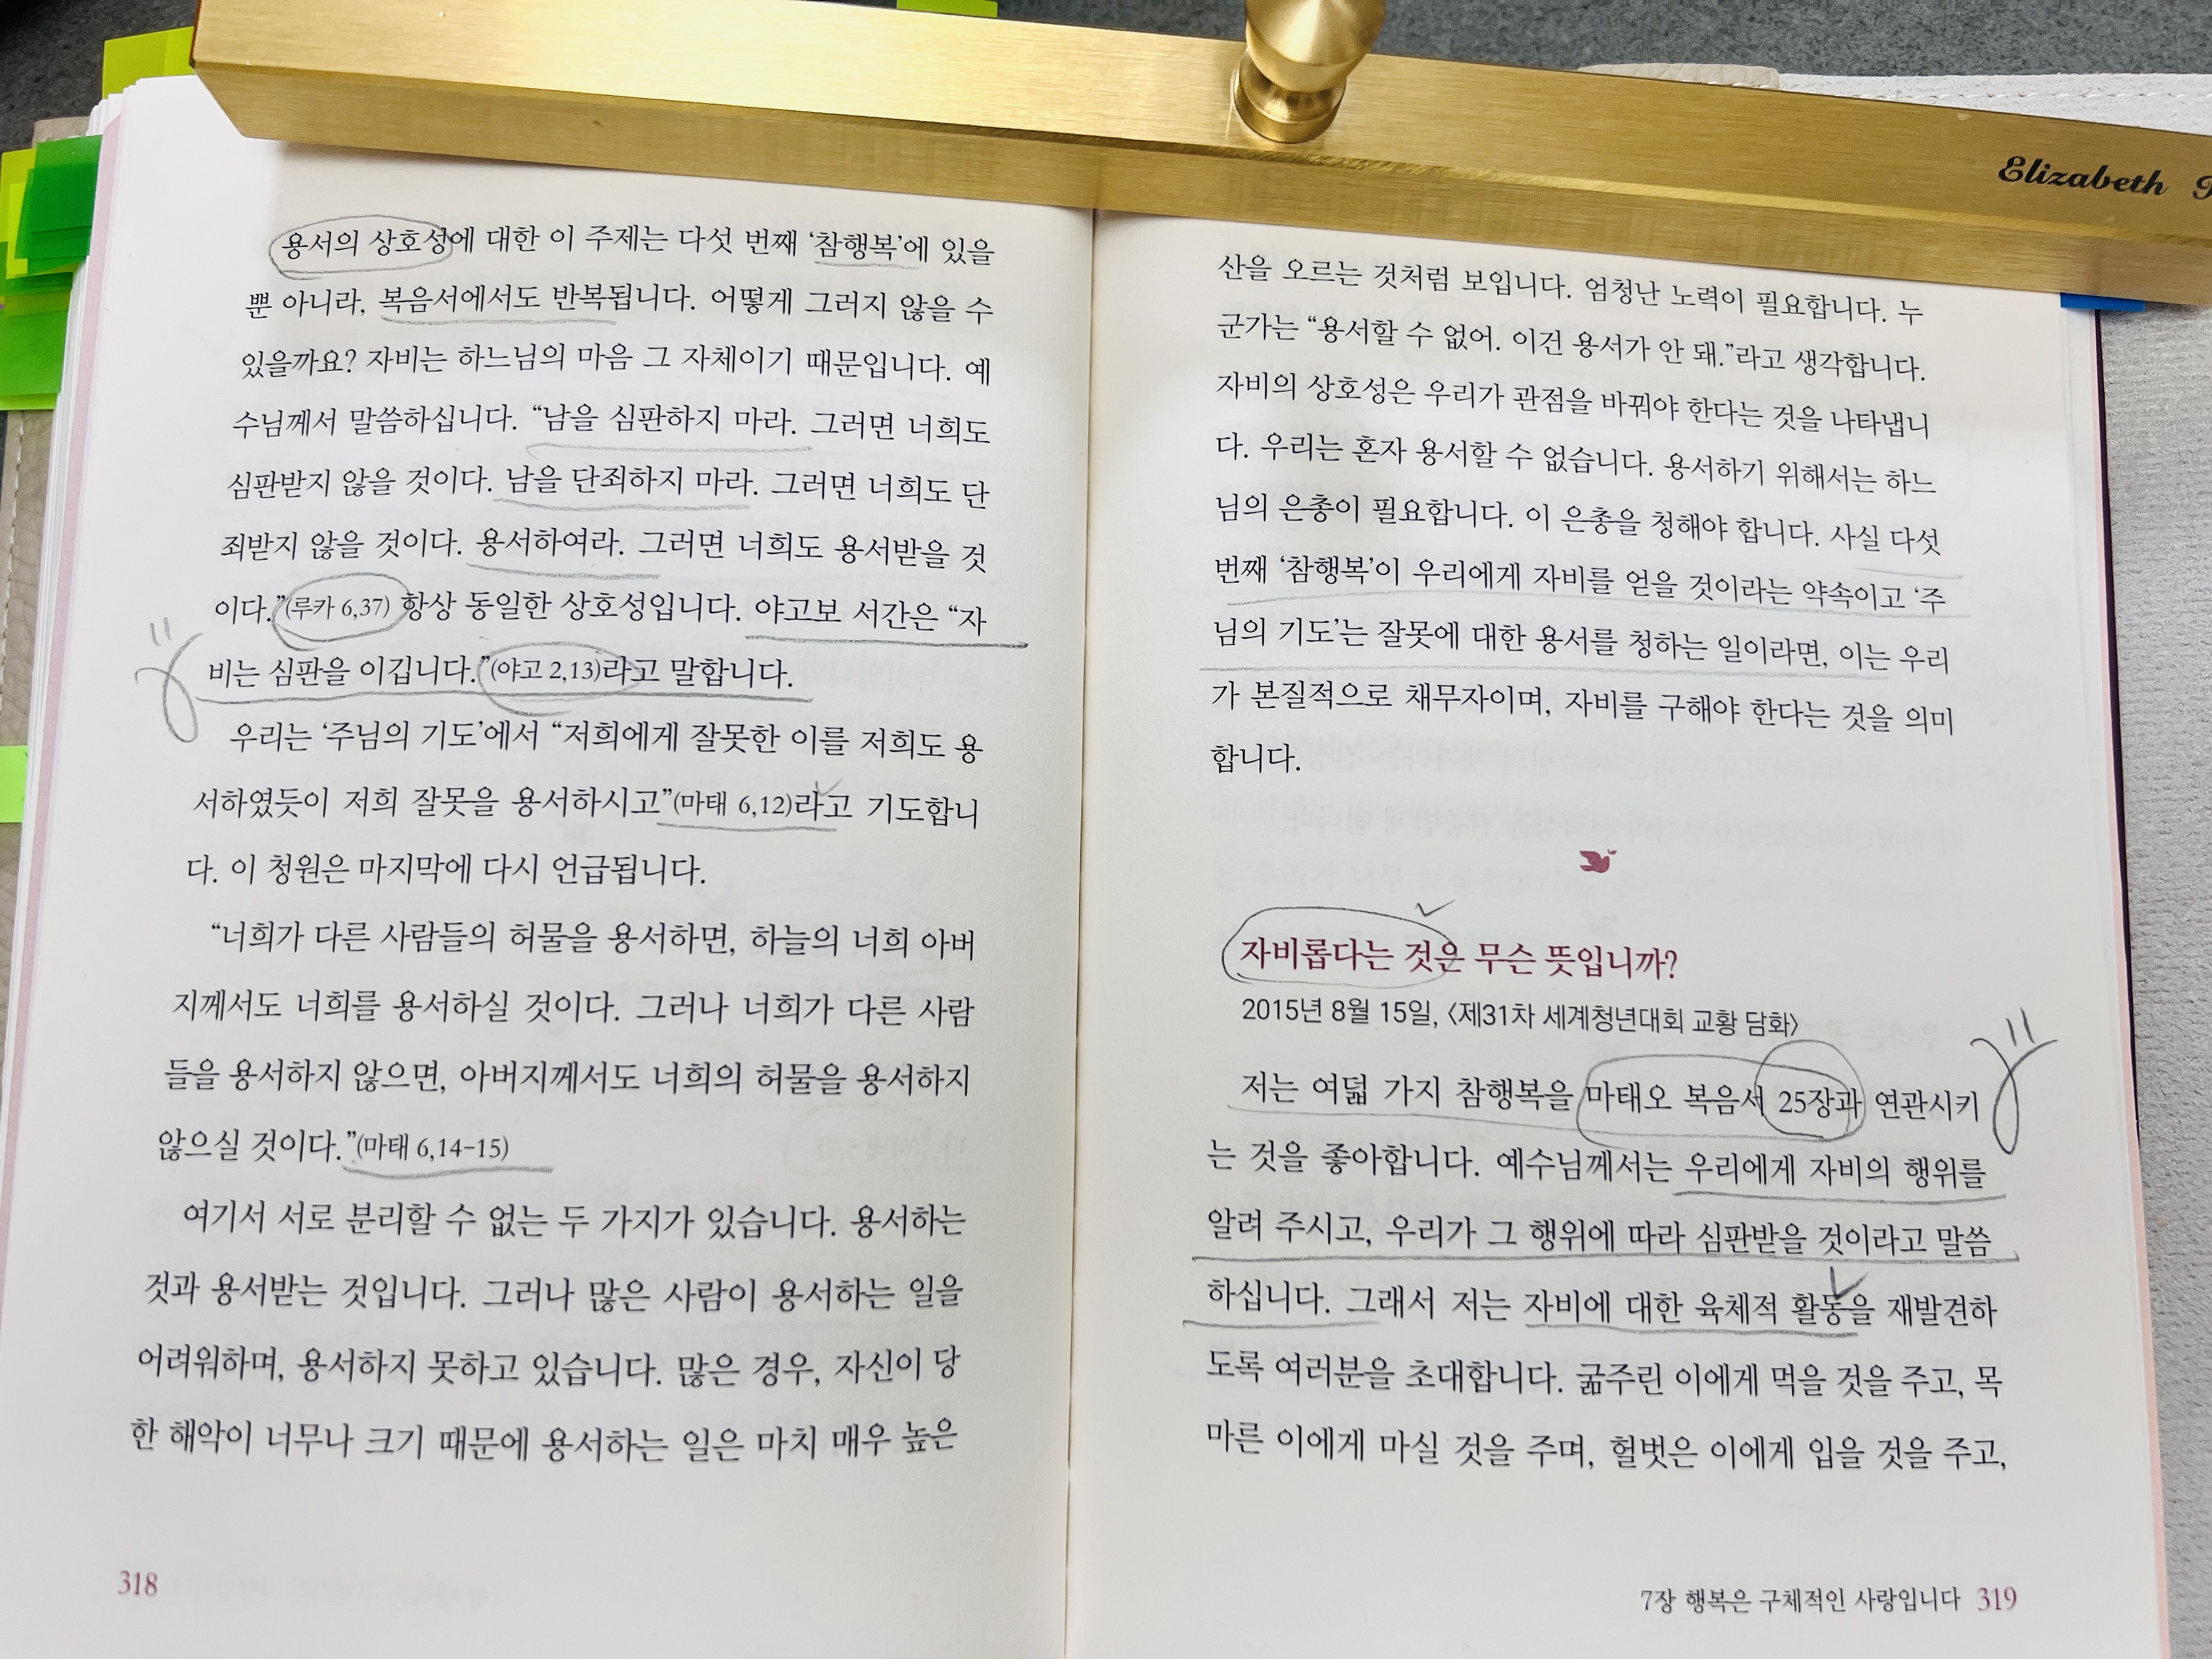 Elizabeth
용서의 상호성에 대한 이 주제는 다섯 번째 ‘참행복’에 있을
뿐 아니라, 복음서에서도 반복됩니다. 어떻게 그러지 않을 수
있을까요? 자비는 하느님의 마음 그 자체이기 때문입니다. 예
수님께서 말씀하십니다. “남을 심판하지 마라. 그러면 너희도
심판받지 않을 것이다. 남을 단죄하지 마라. 그러면 너희도 단
죄받지 않을 것이다. 용서하여라. 그러면 너희도 용서받을 것
이다.”(루카 6,37) 항상 동일한 상호성입니다. 야고보 서간은 “자
비는 심판을 이깁니다.”(야고 2,13)라고 말합니다.
우리는 ‘주님의 기도’에서 “저희에게 잘못한 이를 저희도 용
서하였듯이 저희 잘못을 용서하시고”(마태 6,12)라고 기도합니
다. 이 청원은 마지막에 다시 언급됩니다.
“너희가 다른 사람들의 허물을 용서하면, 하늘의 너희 아버
지께서도 너희를 용서하실 것이다. 그러나 너희가 다른 사람
들을 용서하지 않으면, 아버지께서도 너희의 허물을 용서하지
않으실 것이다.”(마태 6,14-15)
여기서 서로 분리할 수 없는 두 가지가 있습니다. 용서하는
것과 용서받는 것입니다. 그러나 많은 사람이 용서하는 일을
어려워하며, 용서하지 못하고 있습니다. 많은 경우, 자신이 당
한 해악이 너무나 크기 때문에 용서하는 일은 마치 매우 높은
318
산을 오르는 것처럼 보입니다. 엄청난 노력이 필요합니다. 누
군가는 “용서할 수 없어. 이건 용서가 안 돼.”라고 생각합니다.
자비의 상호성은 우리가 관점을 바꿔야 한다는 것을 나타냅니
다. 우리는 혼자 용서할 수 없습니다. 용서하기 위해서는 하느
님의 은총이 필요합니다. 이 은총을 청해야 합니다. 사실 다섯
번째 ‘참행복’이 우리에게 자비를 얻을 것이라는 약속이고 ‘주
님의 기도’는 잘못에 대한 용서를 청하는 일이라면, 이는 우리
가 본질적으로 채무자이며, 자비를 구해야 한다는 것을 의미
합니다.
자비롭다는 것은 무슨 뜻입니까?
2015년 8월 15일, 〈제31차 세계청년대회 교황 담화〉
저는 여덟 가지 참행복을 마태오 복음서 25장과 연관시키
는 것을 좋아합니다. 예수님께서는 우리에게 자비의 행위를
알려 주시고, 우리가 그 행위에 따라 심판받을 것이라고 말씀
하십니다. 그래서 저는 자비에 대한 육체적 활동을 재발견하
도록 여러분을 초대합니다. 굶주린 이에게 먹을 것을 주고, 목
마른 이에게 마실 것을 주며, 헐벗은 이에게 입을 것을 주고,
7장 행복은 구체적인 사랑입니다 319